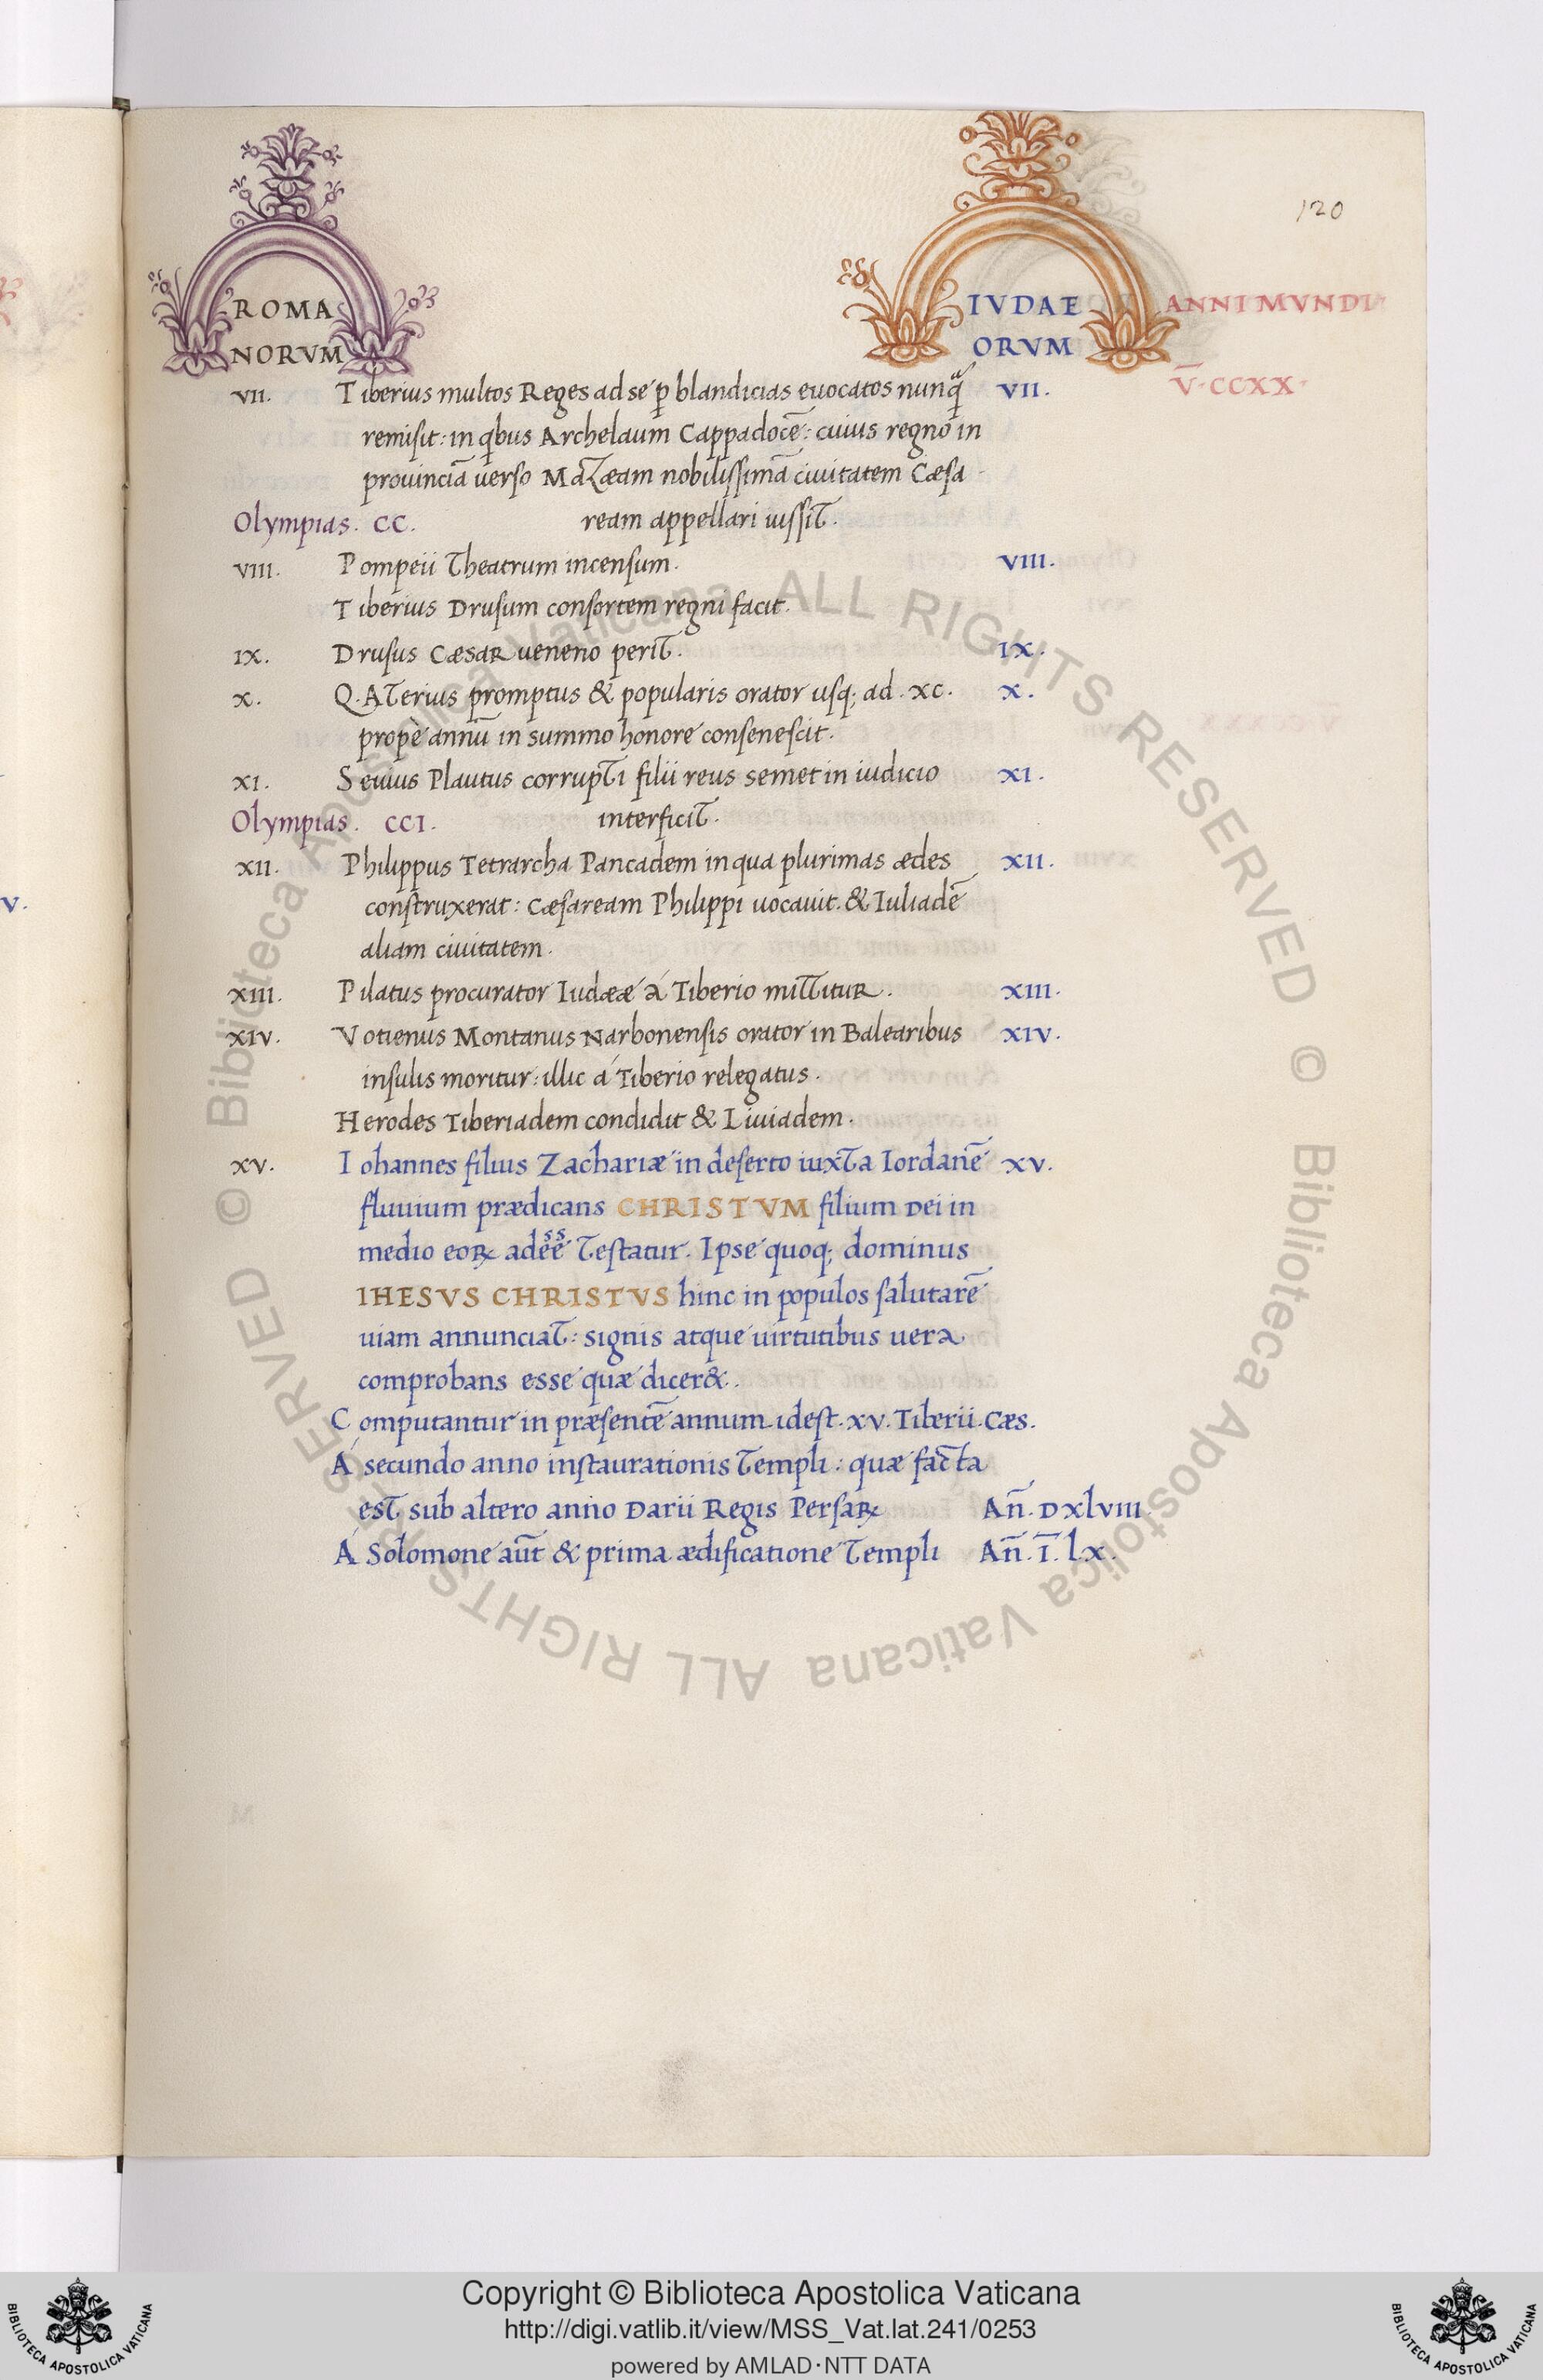 120
ROMA IVDAE ANNI MVNDI
NORVM ORVM
VII. Tiberius multos Reges ad se ꝑ blandicias euocatos nunꝗ̃ VII. V̅·CCXX·
remisit: in qbus Archelaum Cappadocē: cuius regno in
prouinciā uerso Mazæam nobilissimā ciuitatem Cæsa-
Olympias. CC. ream appellari iussit.
VIII. Pompeii Theatrum incensum. VIII.
Tiberius Drusum consortem regni facit.
IX. Drusus Cæsar ueneno perit. IX.
X. Q. Aterius promptus & popularis orator usq; ad .XC. X.
propè annū in summo honore consenescit.
XI. Seuius Plautus corrupti filii reus semet in iudicio XI.
Olympias. CCI. interficit.
XII. Philippus Tetrarcha Pancadem in qua plurimas ædes XII.
construxerat: Cæsaream Philippi uocauit. & Iuliadē
aliam ciuitatem.
XIII. Pilatus procurator Iudææ á Tiberio mittitur. XIII.
XIV. Votienus Montanus Narbonensis orator in Balearibus XIV.
insulis moritur: illic á Tiberio relegatus.
Herodes Tiberiadem condidit & Liuiadem.
XV. Iohannes filius Zachariæ in deserto iuxta Iordanē XV.
fluuium prædicans CHRISTVM filium Dei in
medio eoꝝ adēē testatur. Ipse quoq; dominus
IHESVS CHRISTVS hinc in populos salutarē
uiam annunciat: signis atque uirtutibus uera
comprobans esse quæ dicer&.
Computantur in præsentē annum .idest. xv. Tiberii Cæs.
Á secundo anno instaurationis Templi: quæ facta
est sub altero anno Darii Regis Persaꝝ An̄. Dxlviii
Á Solomone aut̄ & prima ædificatione Templi An̄. I̅. lx.
© Biblioteca Apostolica Vaticana ALL RIGHTS RESERVED
© Biblioteca Apostolica Vaticana ALL RIGHTS RESERVED
V.
Copyright © Biblioteca Apostolica Vaticana
http://digi.vatlib.it/view/MSS_Vat.lat.241/0253
powered by AMLAD·NTT DATA
BIBLIOTECA APOSTOLICA VATICANA
BIBLIOTECA APOSTOLICA VATICANA